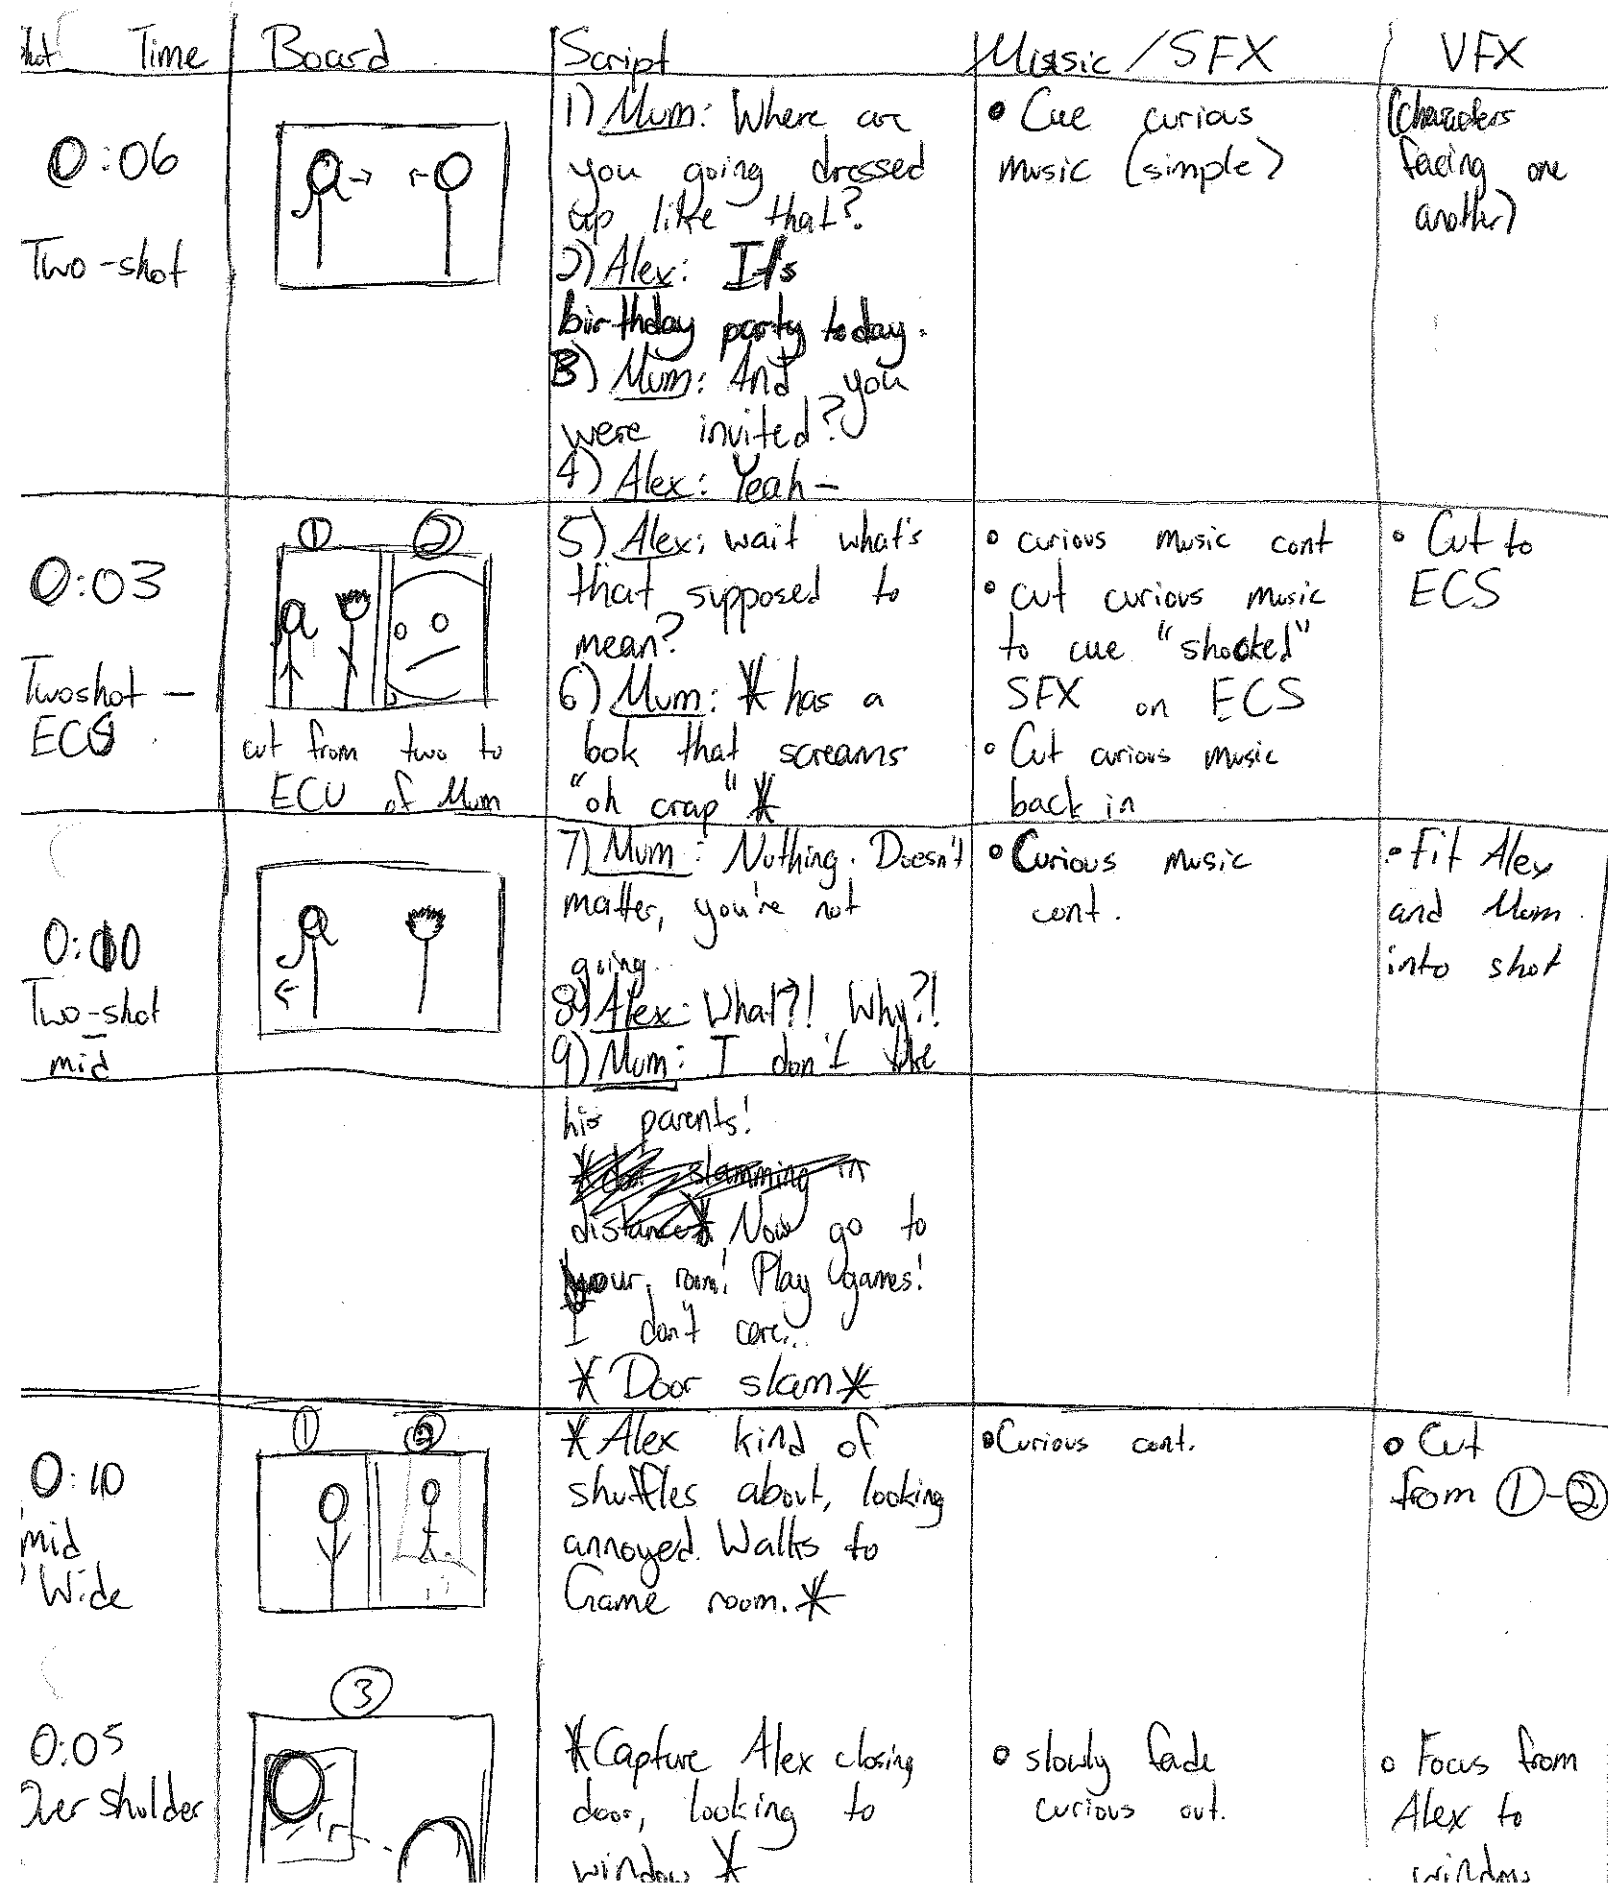 Time Board Script Music / SFX VFX
0:06
Two-shot
1) Mum: Where are
you going dressed
up like that?
2) Alex: It's
birthday party today.
3) Mum: And you
were invited?
4) Alex: Yeah –
• Cue curious
music (simple)
(Characters
facing one
another)
0:03
Twoshot –
① ②
cut from two to
ECU of Mum
5) Alex: wait what's
that supposed to
mean?
6) Mum: * has a
look that screams
"oh crap" *
• curious music cont
• cut curious music
to cue "shocked"
SFX on ECS
• Cut curious music
back in
• Cut to
ECS
0:10
Two-shot
mid
7) Mum: Nothing. Doesn't
matter, you're not
going.
8) Alex: What?! Why?!
9) Mum: I don't like
his parents!
*door slamming in
distance* Now go to
your room! Play games!
I don't care..
*Door slam*
• Curious music
cont.
• Fit Alex
and Mum
into shot
0:10
mid
Wide
① ②
*Alex kind of
shuffles about, looking
annoyed. Walks to
Game room.*
• Curious cont.
• Cut
from ①-②
0:05
Over sholder
③
*Capture Alex closing
door, looking to
window *
• slowly fade
curious out.
• Focus from
Alex to
window